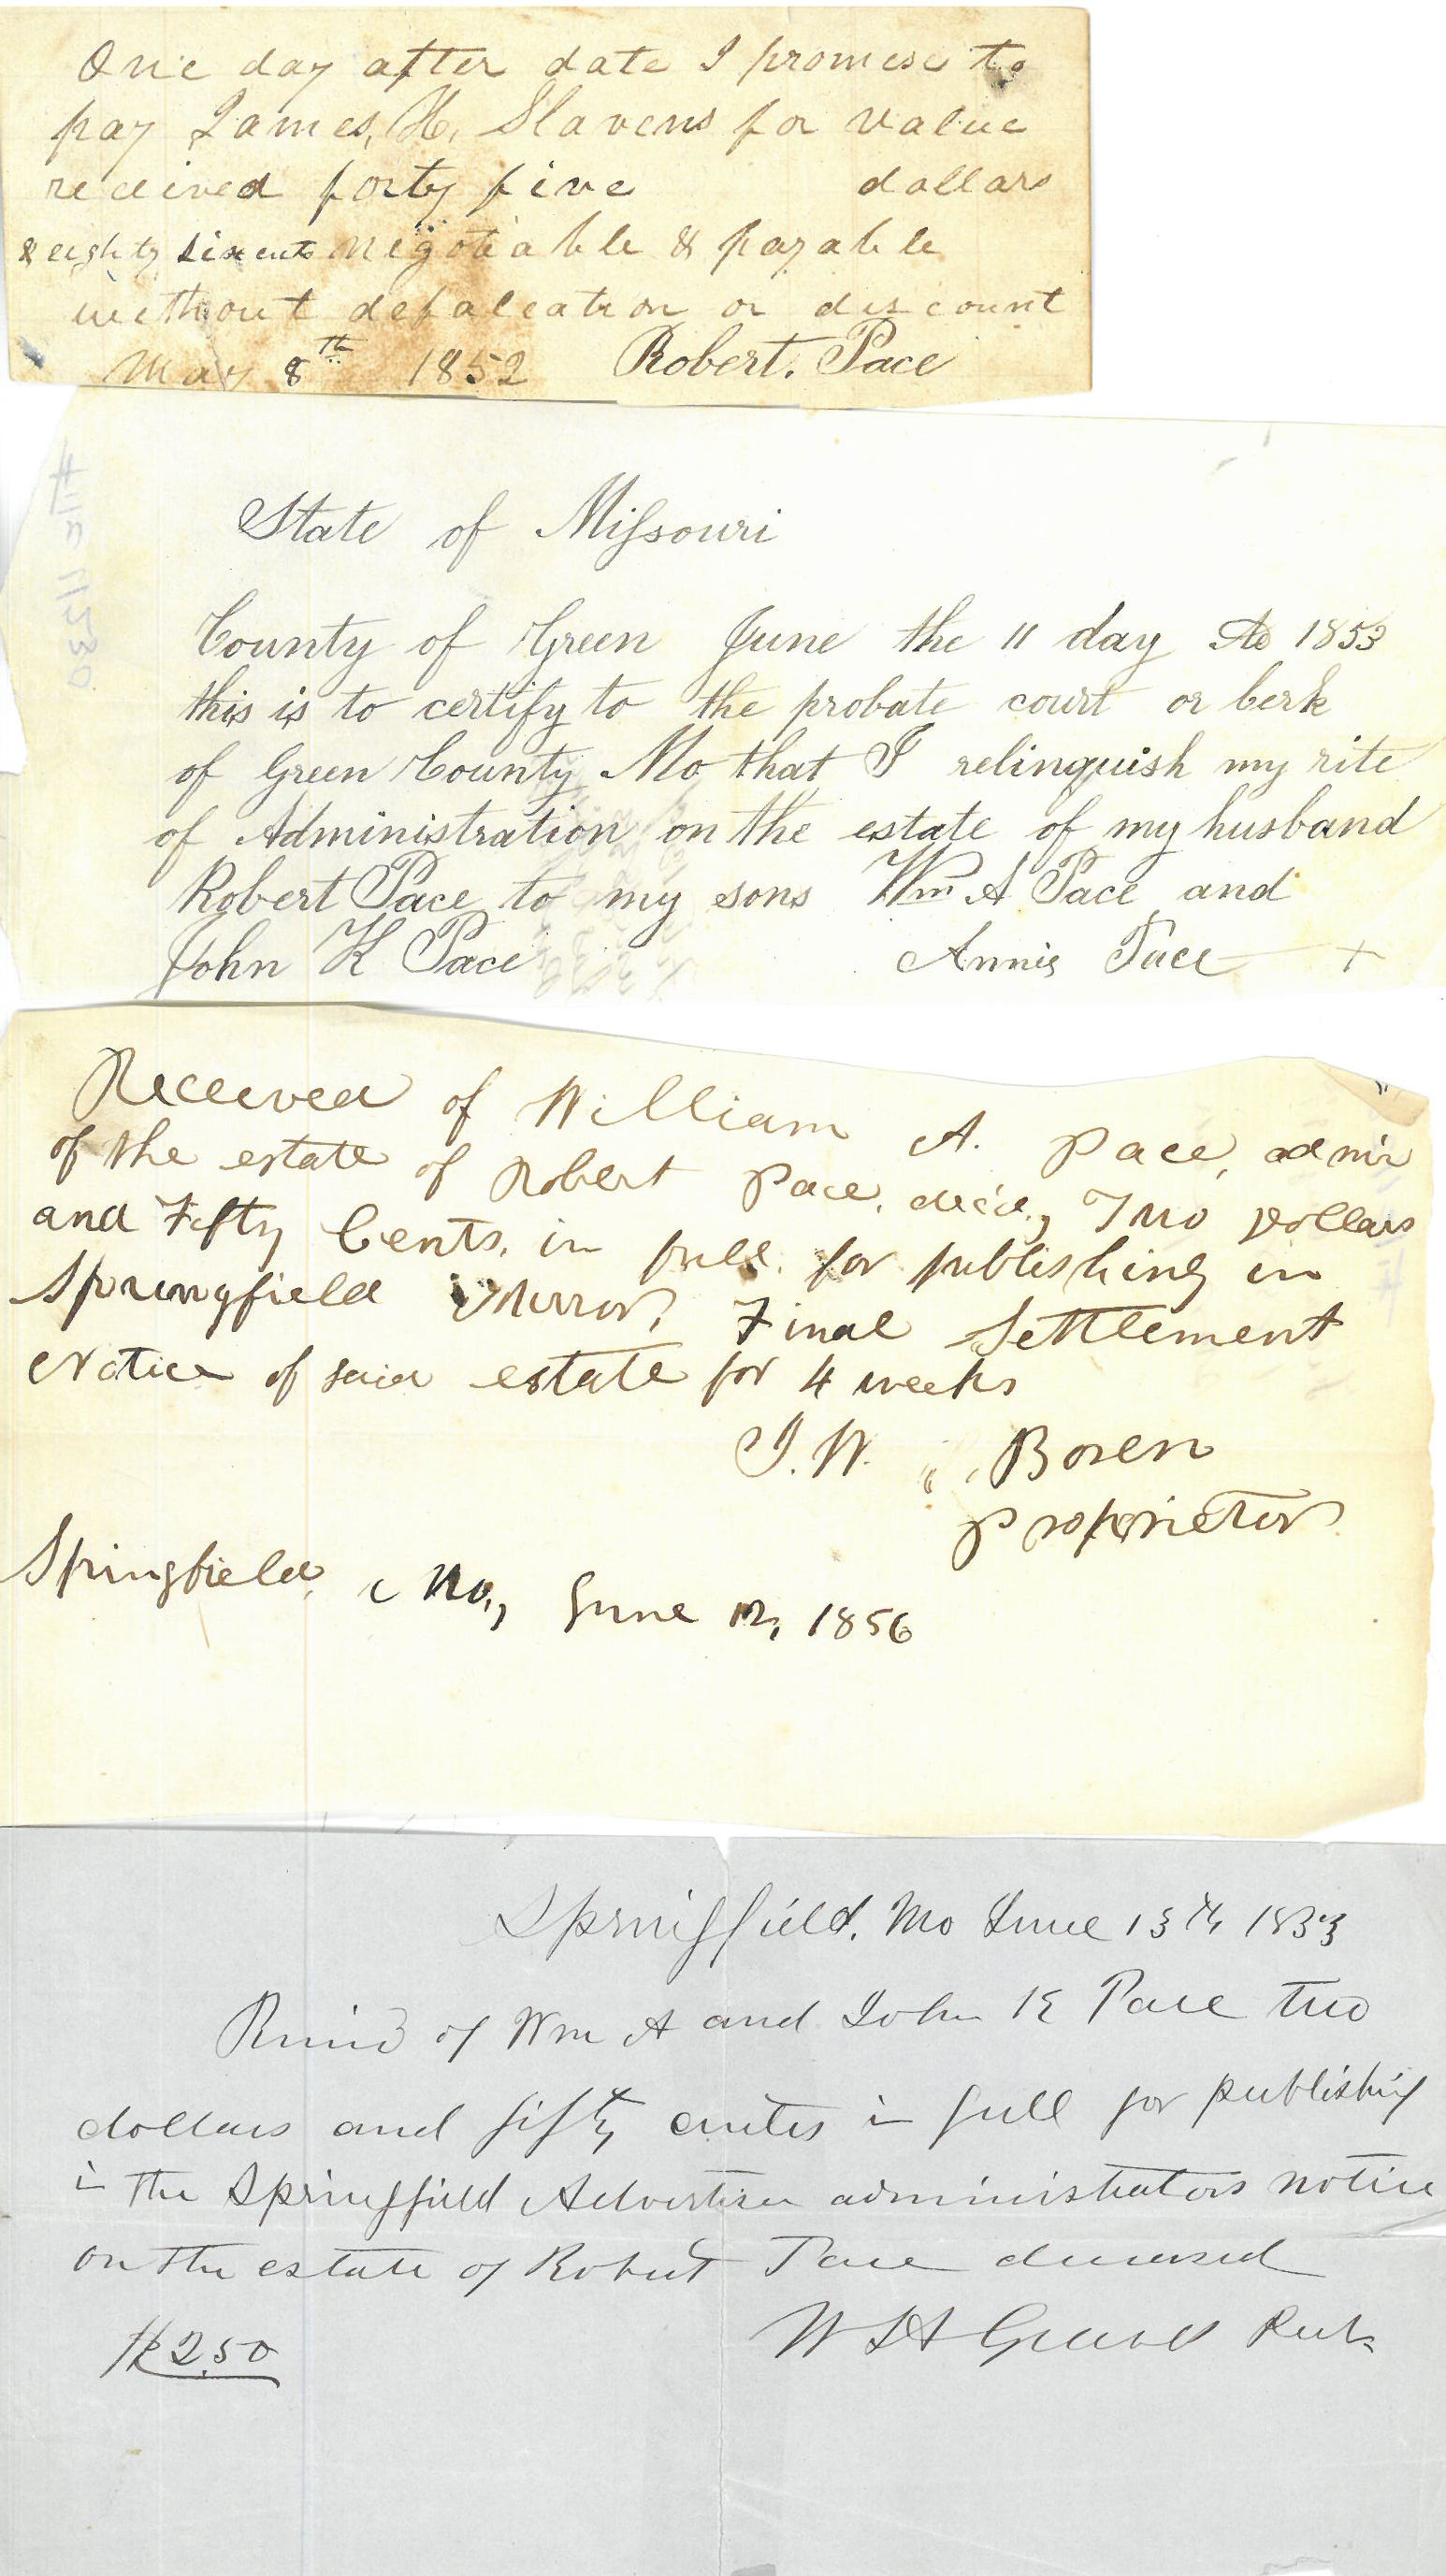 One day after date I promise to
pay James, H, Slavens for value
received forty five dollars
& eighty six cents negotiable & payable
without defalcation or discount
May 8th 1852 Robert. Pace
State of Missouri
County of Green June the 11 day AD 1853
this is to certify to the probate court or berk
of Green County Mo that I relinquish my rite
of Administration on the estate of my husband
Robert Pace to my sons Wm A Pace and
John K Pace Annis Pace +
# 11530
Received of William A. Pace, admr
of the estate of Robert Pace, dec'd., Two Dollars
and Fifty Cents, in full for publishing in
Springfield Mirror, Final Settlement
Notice of said estate for 4 weeks
J. W. Boren
Proprietor
Springfield, Mo., June 12, 1856
Springfield. Mo June 13th 1853
Recd of Wm A and John K Pace two
dollars and fifty cents in full for publishing
in the Springfield Advertiser administrators notice
on the estate of Robert Pace deceased
$2.50 W H